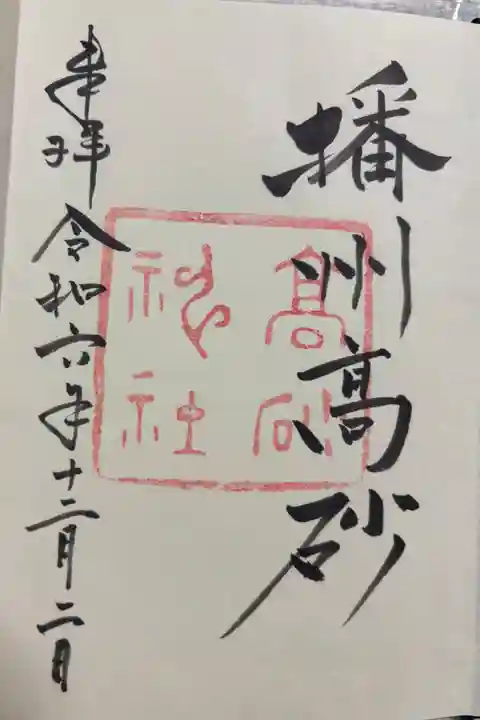 播州高砂
高砂
神社
奉拝 令和六年十二月二日